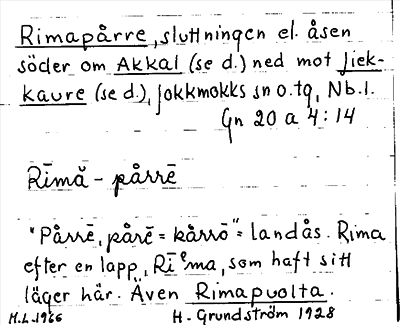 Rimapårre, sluttningen el. åsen
söder om Akkal (se d.) ned mot Jiek-
kaure (se d.), Jokkmokks sn o. tg, Nb. l.
Gn 20 a 4:14
Rīmă - pårrē
"Pårrē, pårē = kårrō" = landås. Rima
efter en lapp, Rīᵉma, som haft sitt
läger här. Även Rimapuolta.
H.L-1966 H. Grundström 1928